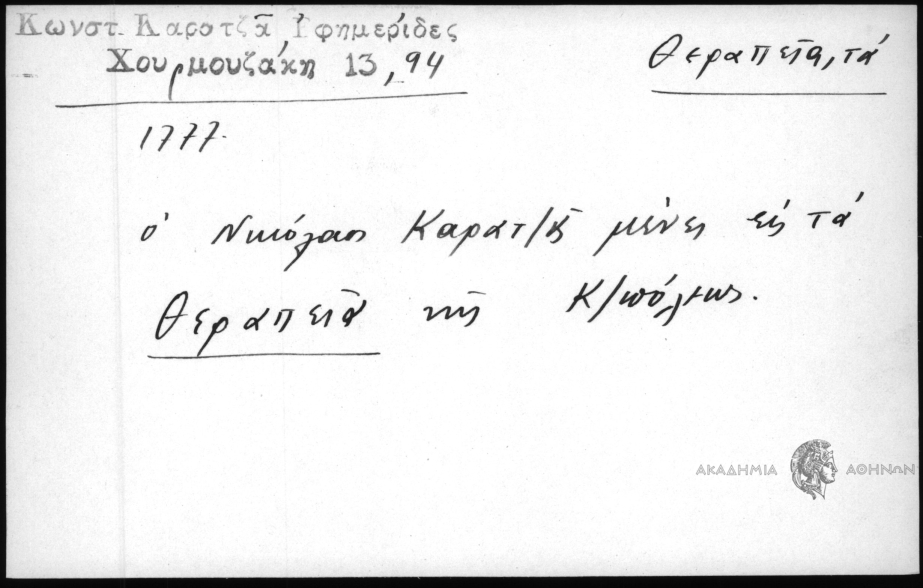 Κωνστ. Καρατζᾶ Ἐφημερίδες
Χουρμουζάκη 13, 94
Θεραπειᾶ, τά
1777.
ὁ Νικόλαος Καρατζᾶς μένει εἰς τά
Θεραπειᾶ τῆς Κ/πόλεως.
ΑΚΑΔΗΜΙΑ ΑΘΗΝΩΝ